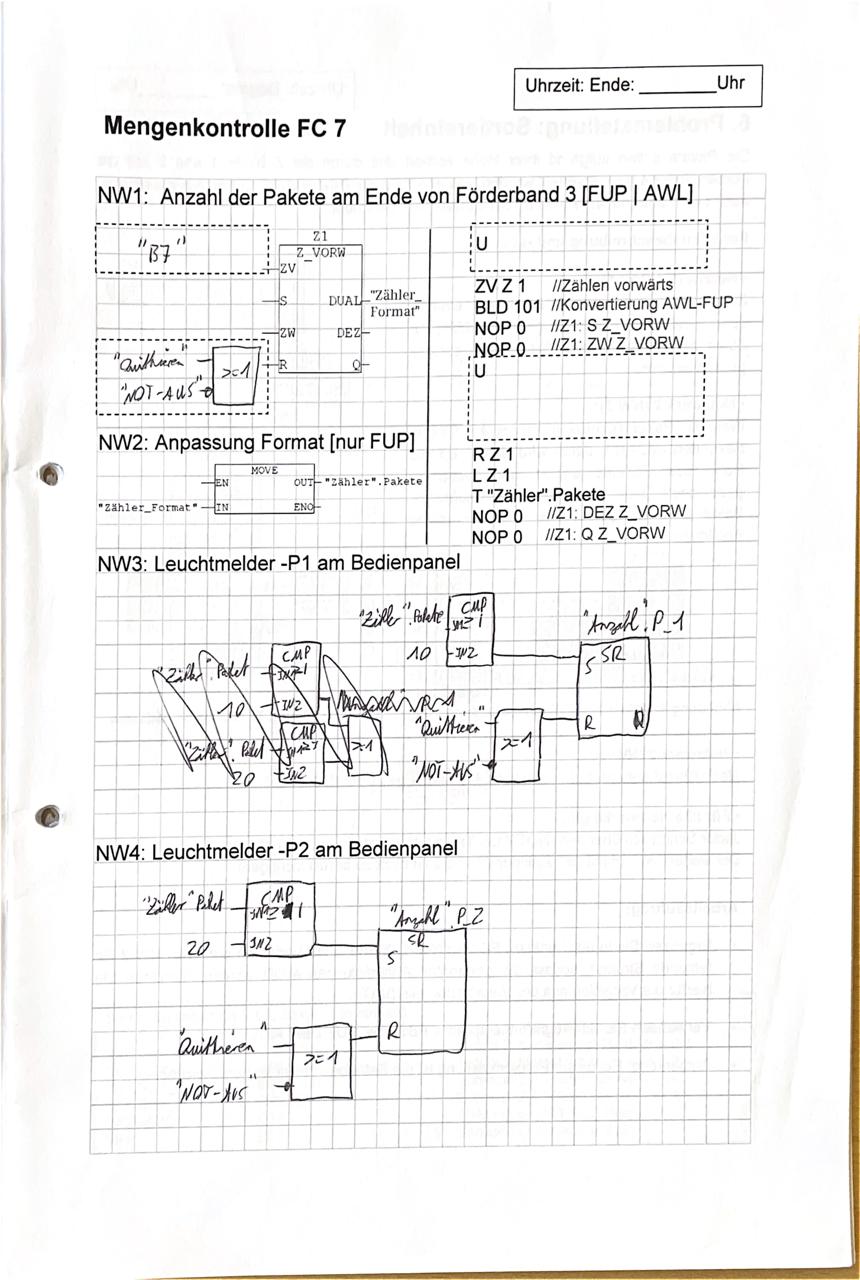 Uhrzeit: Ende: ________Uhr
Mengenkontrolle FC 7
NW1: Anzahl der Pakete am Ende von Förderband 3 [FUP | AWL]
"B7"
Z1
Z_VORW
ZV
S DUAL "Zähler_
Format"
ZW DEZ
"Quittieren"
>=1
R Q
"NOT-AUS"
U
ZV Z 1 //Zählen vorwärts
BLD 101 //Konvertierung AWL-FUP
NOP 0 //Z1: S Z_VORW
NOP 0 //Z1: ZW Z_VORW
U
R Z 1
L Z 1
T "Zähler".Pakete
NOP 0 //Z1: DEZ Z_VORW
NOP 0 //Z1: Q Z_VORW
NW2: Anpassung Format [nur FUP]
MOVE
EN OUT "Zähler".Pakete
"Zähler_Format" IN ENO
NW3: Leuchtmelder -P1 am Bedienpanel
"Zähler".Pakete CMP
10 IN2
"Anzahl".P_1
SR
S
"Quittieren"
>=1
R Q
"NOT-AUS"
"Zähler".Paket CMP
10 IN2
"Zähler".Paket CMP
>=1
20 IN2
NW4: Leuchtmelder -P2 am Bedienpanel
"Zähler" Paket CMP
20 IN2
"Anzahl".P_2
SR
S
"Quittieren"
R
>=1
"NOT-AUS"